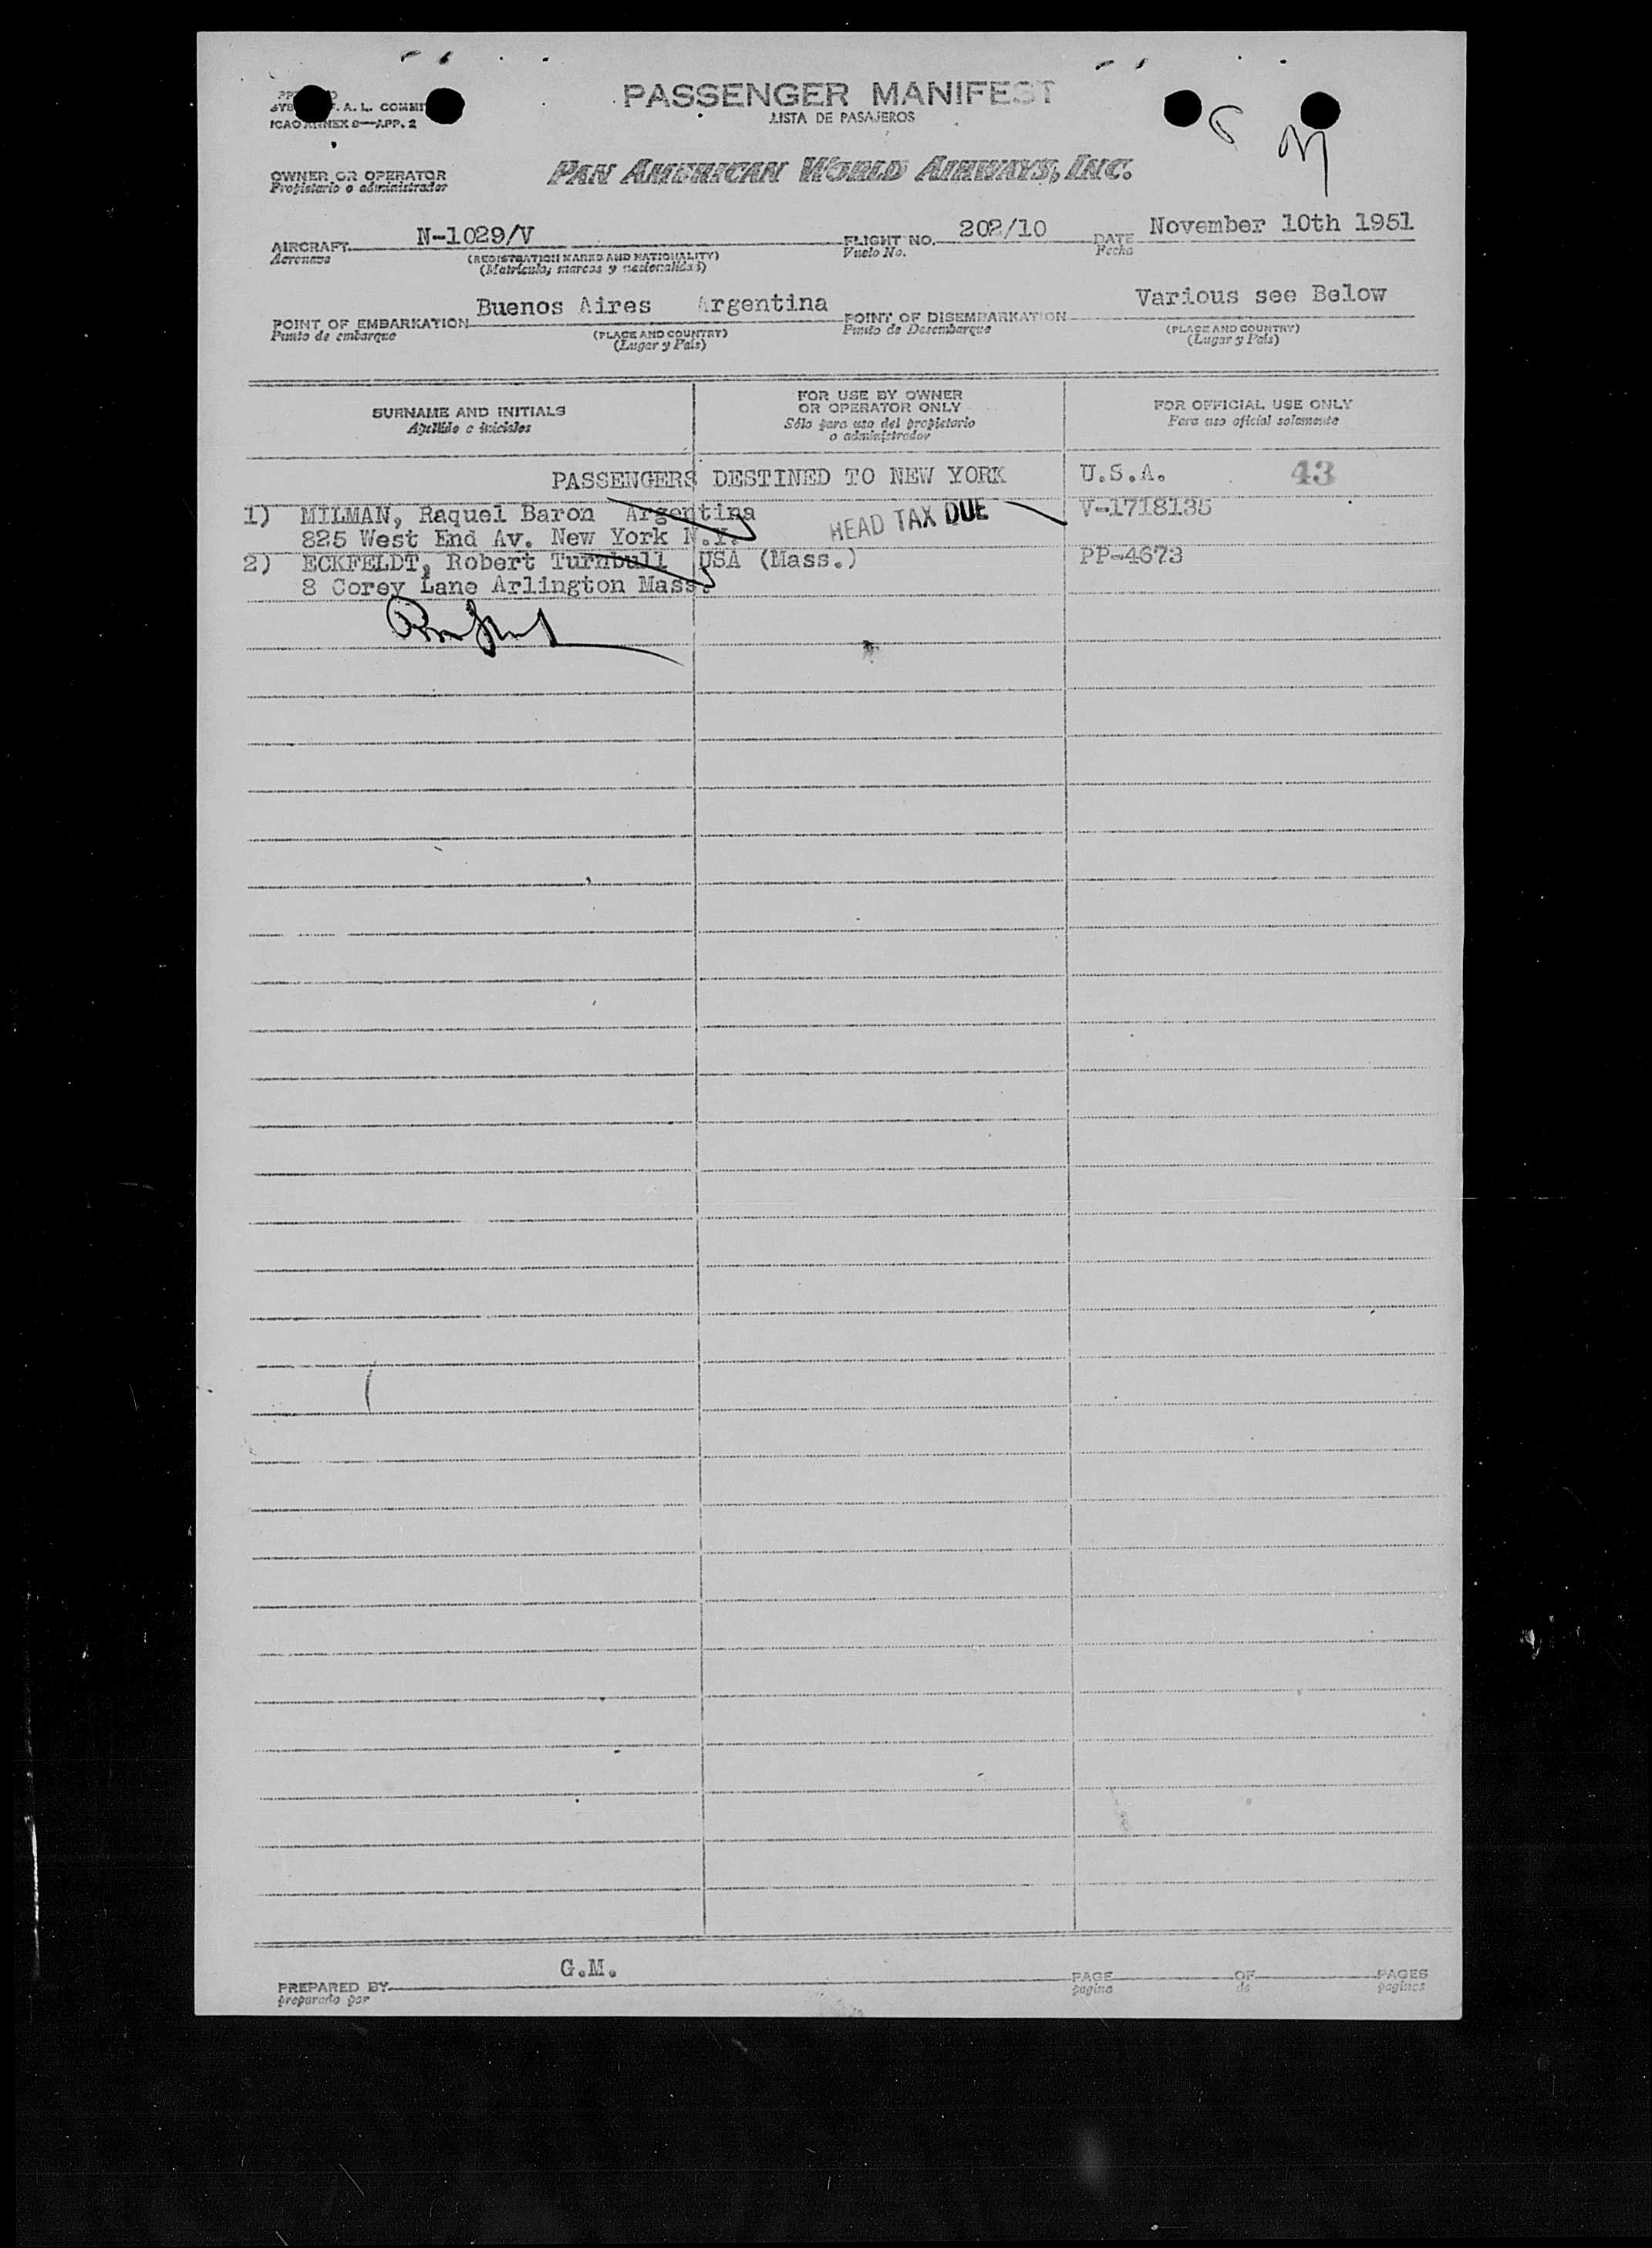 PASSENGER MANIFEST
LISTA DE PASAJEROS
A. L. COMMI
ICAO ANNEX 9—APP. 2
OWNER OR OPERATOR
Propietario o administrador
PAN AMERICAN WORLD AIRWAYS, INC.
AIRCRAFT N-1029/V FLIGHT NO. 202/10 DATE November 10th 1951
Aeronave (REGISTRATION MARKS AND NATIONALITY) Vuelo No. Fecha
(Matrícula, marcas y nacionalidad)
POINT OF EMBARKATION Buenos Aires Argentina POINT OF DISEMBARKATION Various see Below
Punto de embarque (PLACE AND COUNTRY) Punto de Desembarque (PLACE AND COUNTRY)
(Lugar y País) (Lugar y País)
SURNAME AND INITIALS
Apellido e iniciales
FOR USE BY OWNER
OR OPERATOR ONLY
Sólo para uso del propietario
o administrador
FOR OFFICIAL USE ONLY
Para uso oficial solamente
PASSENGERS DESTINED TO NEW YORK U.S.A. 43
1) MILMAN, Raquel Baron Argentina HEAD TAX DUE V-1718135
825 West End Av. New York N.Y.
2) ECKFELDT, Robert Turnbull USA (Mass.) PP-4673
8 Corey Lane Arlington Mass.
PREPARED BY G.M. PAGE OF PAGES
preparado por pagina de pagines